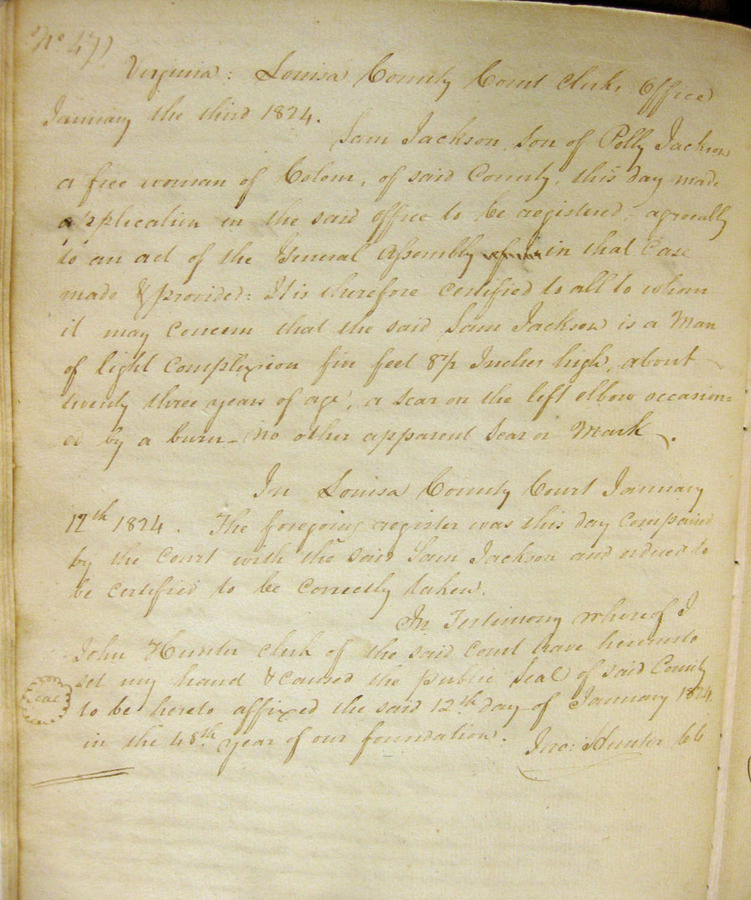 No 47)
Virginia: Louisa County Court Clerks Office
January the third 1824.
Sam Jackson, son of Polly Jackson
a free woman of Colour, of said County, this day made
application in the said office to be registered, agreeably
to an act of the General Assembly in that Case
made & provided: It is therefore certified to all to whom
it may concern that the said Sam Jackson is a Man
of light Complexion five feet 8½ Inches high, about
twenty three years of age, a scar on the left elbow occasion=
ed by a burn - no other apparent Scar or Mark.
In Louisa County Court January
12th 1824. The foregoing register was this day compared
by the Court with the said Sam Jackson and ordered to
be certified to be Correctly taken.
In Testimony whereof I
John Hunter clerk of the said Court have hereunto
set my hand & caused the public Seal of said County
to be hereto affixed the said 12th day of January 1824
in the 48th year of our foundation.
Jno: Hunter
Seal